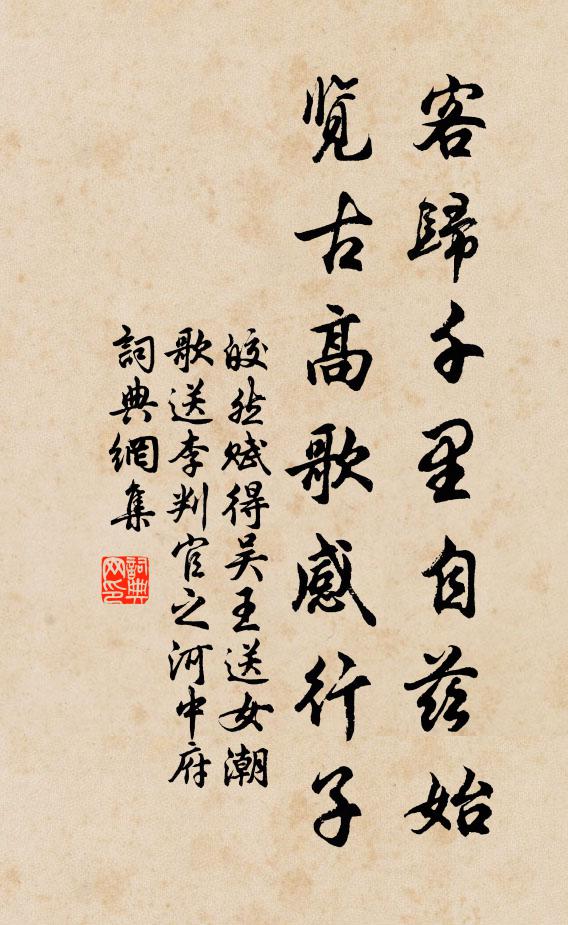 客歸千里自茲始
覽古高歌感行子
皎然賦得吳王送女潮
歌送李判官之河中府
詞典網集
詞典网印